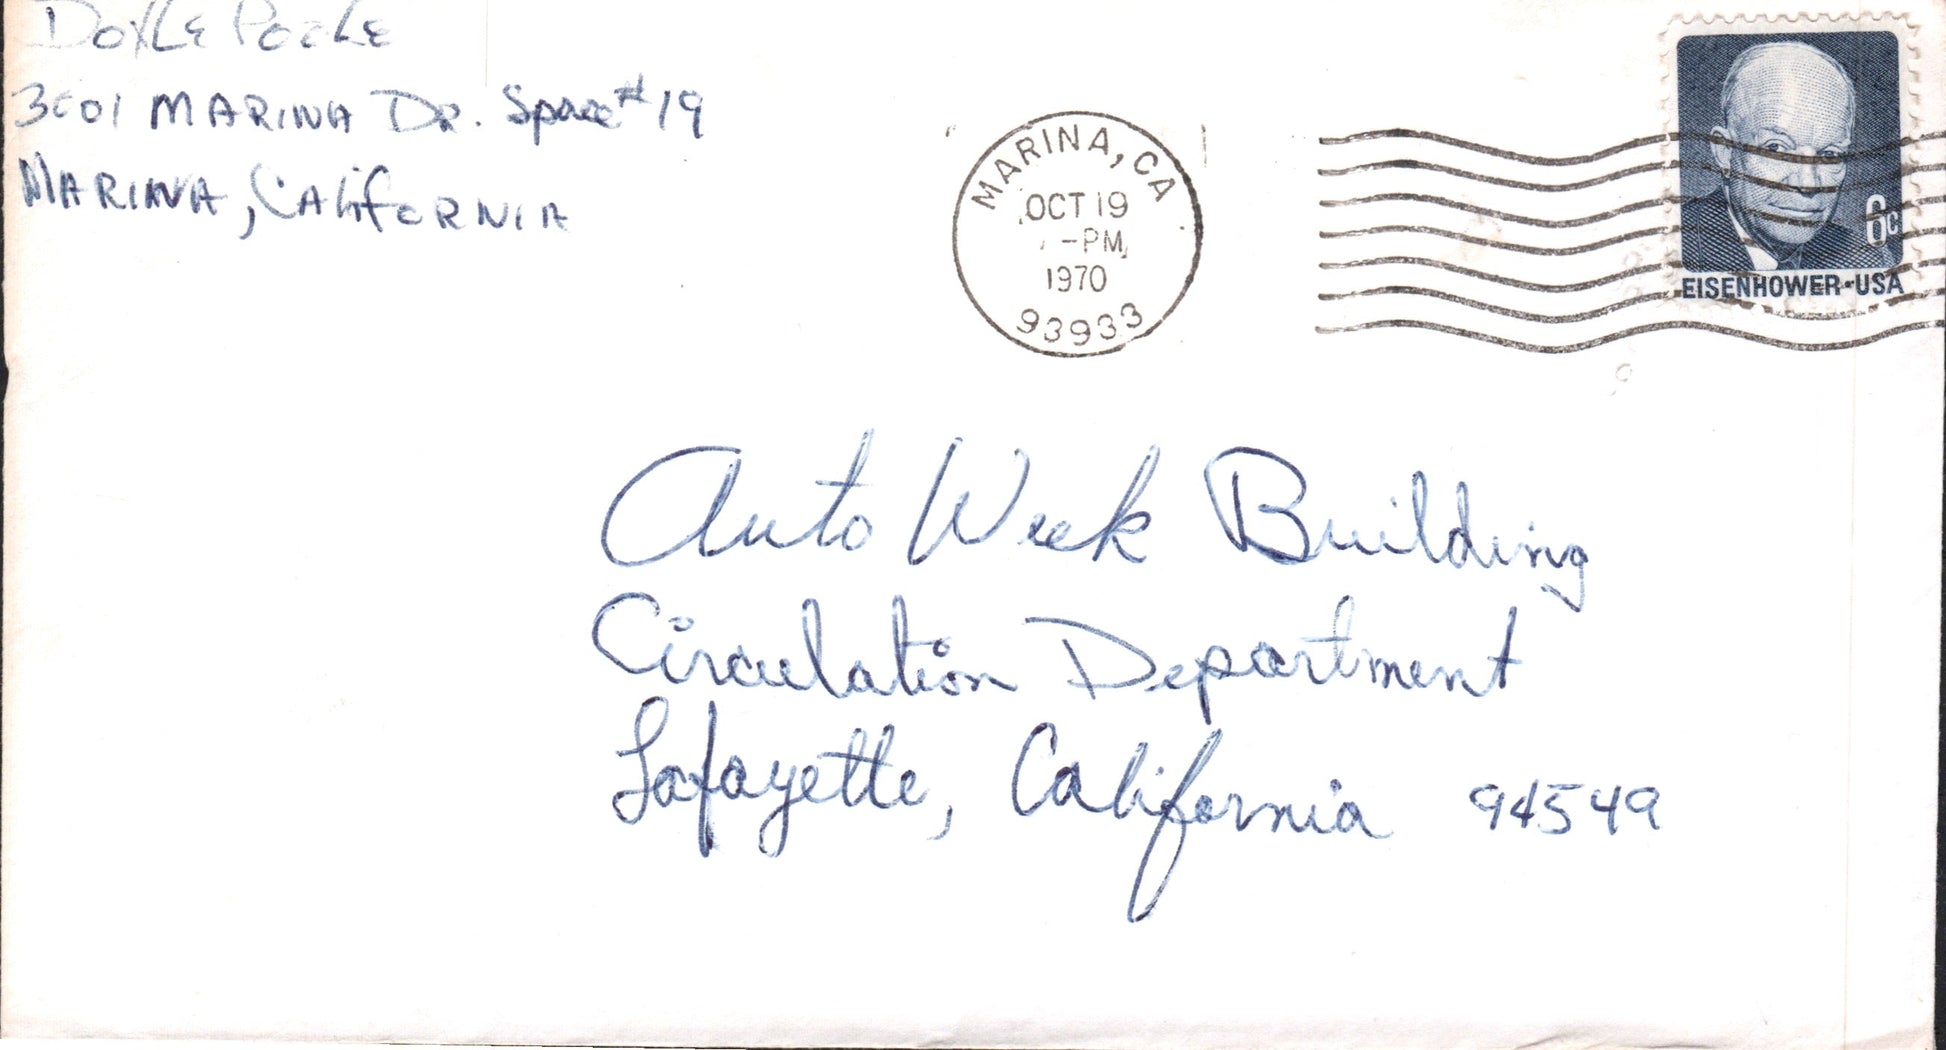 Doyle Poole
3001 MARINA DR. Space #19
MARINA, CALifORNIA
MARINA, CA
OCT 19
-PM
1970
93933
6c
EISENHOWER·USA
Auto Week Building
Circulation Department
Lafayette, California 94549